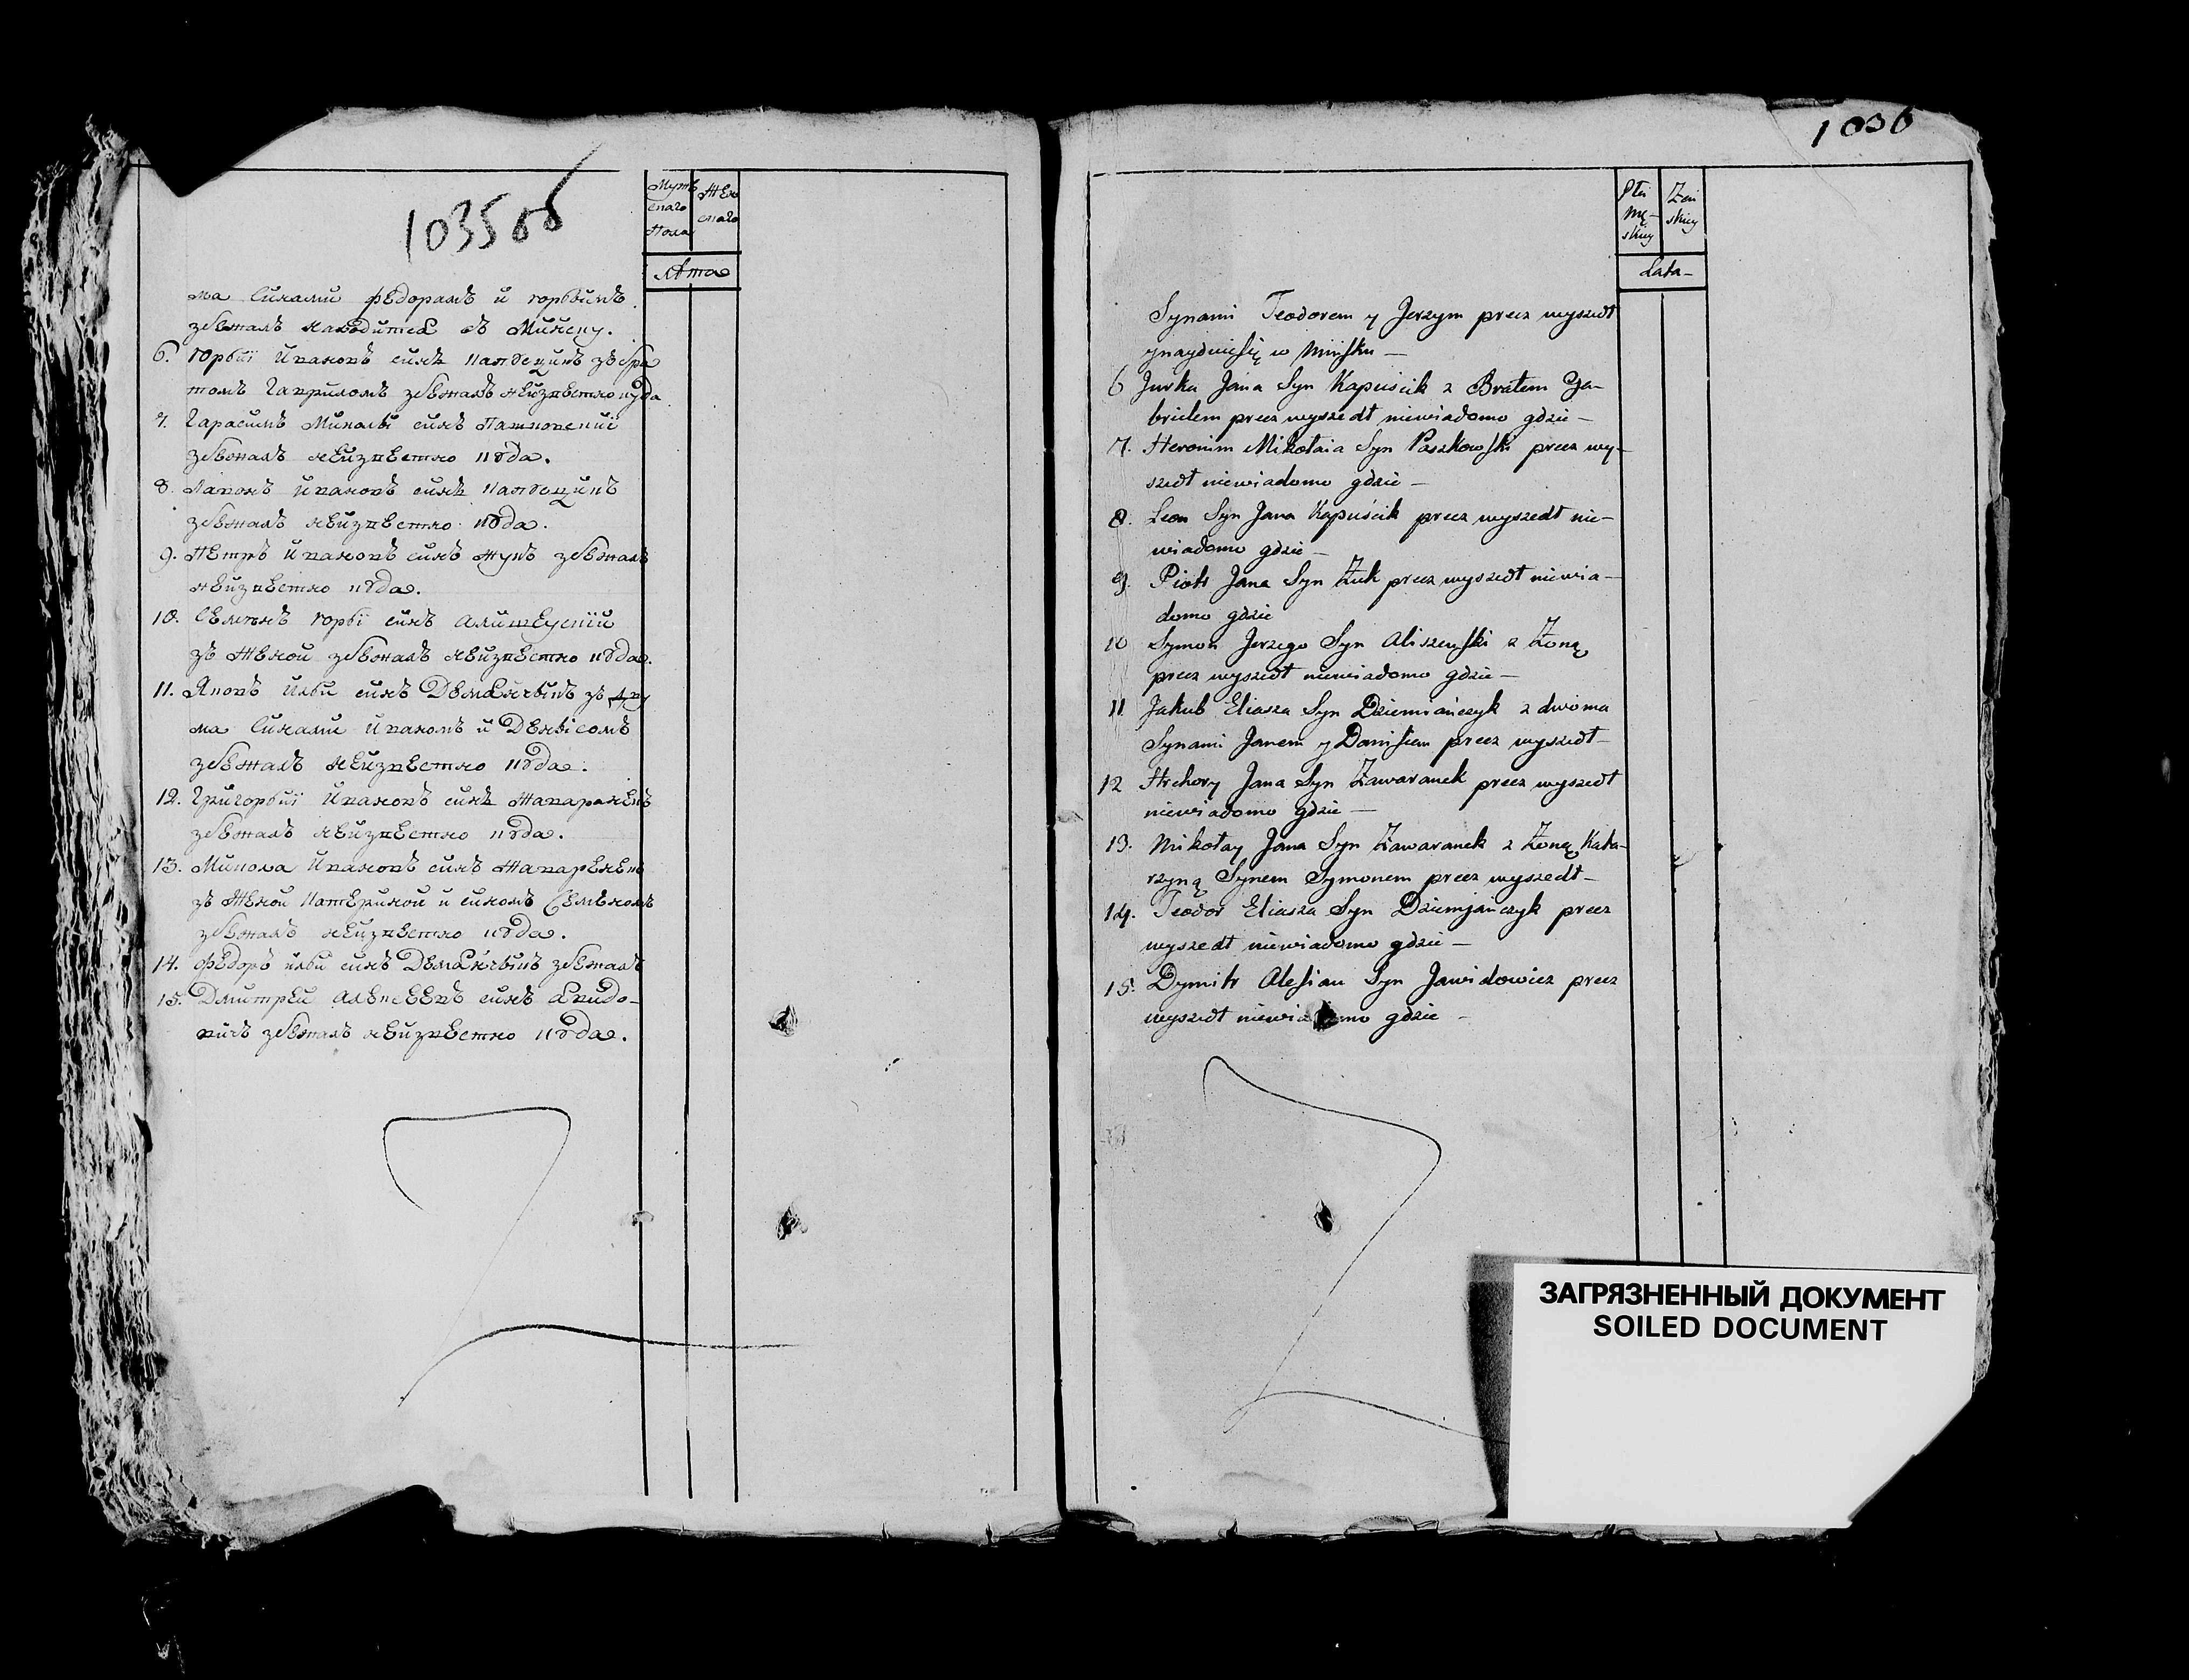 1035об
Мужескаго Пола
Женскаго
лѣта
ма Синами Федорамъ и горвимъ
збежалъ находитса въ Минску.
6. горвиї Ивановъ синъ Капѳсцикъ зъ бра
томъ Гаврилом збежалъ неизвестно куда
7. Гарасимъ Миколы синъ Пашковскиї
збежалъ неизвестно кѳда.
8. Лавонъ Ивановъ синъ Капѳсцикъ
збежалъ неизвестно кѳда.
9. Петръ Ивановъ синъ Жукъ збежалъ
неизвестно кѳда.
10. Семенъ горвї синъ Алишеускїй
зъ Женой збежалъ неизвестно кѳда.
11. Яковъ ильи синъ Демянчыкъ зъ дву
ма Синами Иваномъ и Денисомъ
збежалъ неизвестно кѳда.
12. Григорвиї Ивановъ синъ Жаваранекъ
збежалъ неизвестно кѳда.
13. Микола Ивановъ синъ Жаваренекъ
зъ Женой Катериной и синомъ Семеномъ
збежалъ неизвестно кѳда.
14. Федоръ ильи синъ Демянчыкъ збежалъ
15. Дмитрей Алексеевъ синъ явидо-
вичъ збежалъ неизвестно кѳда.
1036
Płci Mę-skiey
Żeń skiey
Lata-
Synami Teodorem y Jerzym precz wyszedł
ynayduiesię w Mińsku —
6 Jurka Jana Syn Kapuścik z Bratem Ga-
brielem precz wyszedł niewiadomo gdzie —
7. Heronim Mikołaia Syn Paszkowski precz wy-
szedł niewiadomo gdzie —
8. Leon Syn Jana Kapuścik precz wyszedł nie-
wiadomo gdzie —
9. Piotr Jana Syn Żuk precz wyszedł niewia-
domo gdzie
10 Symon Jerzego Syn Aliszewski z Żoną
precz wyszedł niewiadomo gdzie —
11 Jakub Eliasza Syn Dziemiańczyk z dwoma
Synami Janem y Danisiem precz wyszedł —
12 Hrehory Jana Syn Żawaranek precz wyszedł
niewiadomo gdzie —
13. Mikołay Jana Syn Żawaranek z Żoną Kata-
rzyną Synem Symonem precz wyszedł —
14. Teodor Eliasza Syn Dziemjańczyk precz
wyszedł niewiadomo gdzie —
15. Dymitr Alesiau Syn Jawidowicz precz
wyszedł niewiadomo gdzie —
ЗАГРЯЗНЕННЫЙ ДОКУМЕНТ
SOILED DOCUMENT